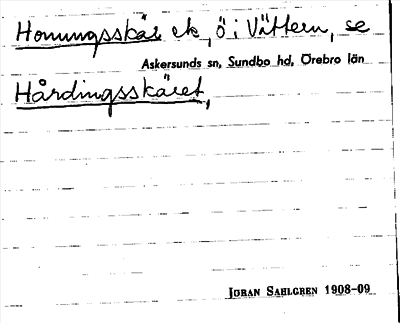 Honungsskär etc, ö i Vättern, se
Askersunds sn, Sundbo hd, Örebro län
Hårdingsskäret,
JÖRAN SAHLGREN 1908-09